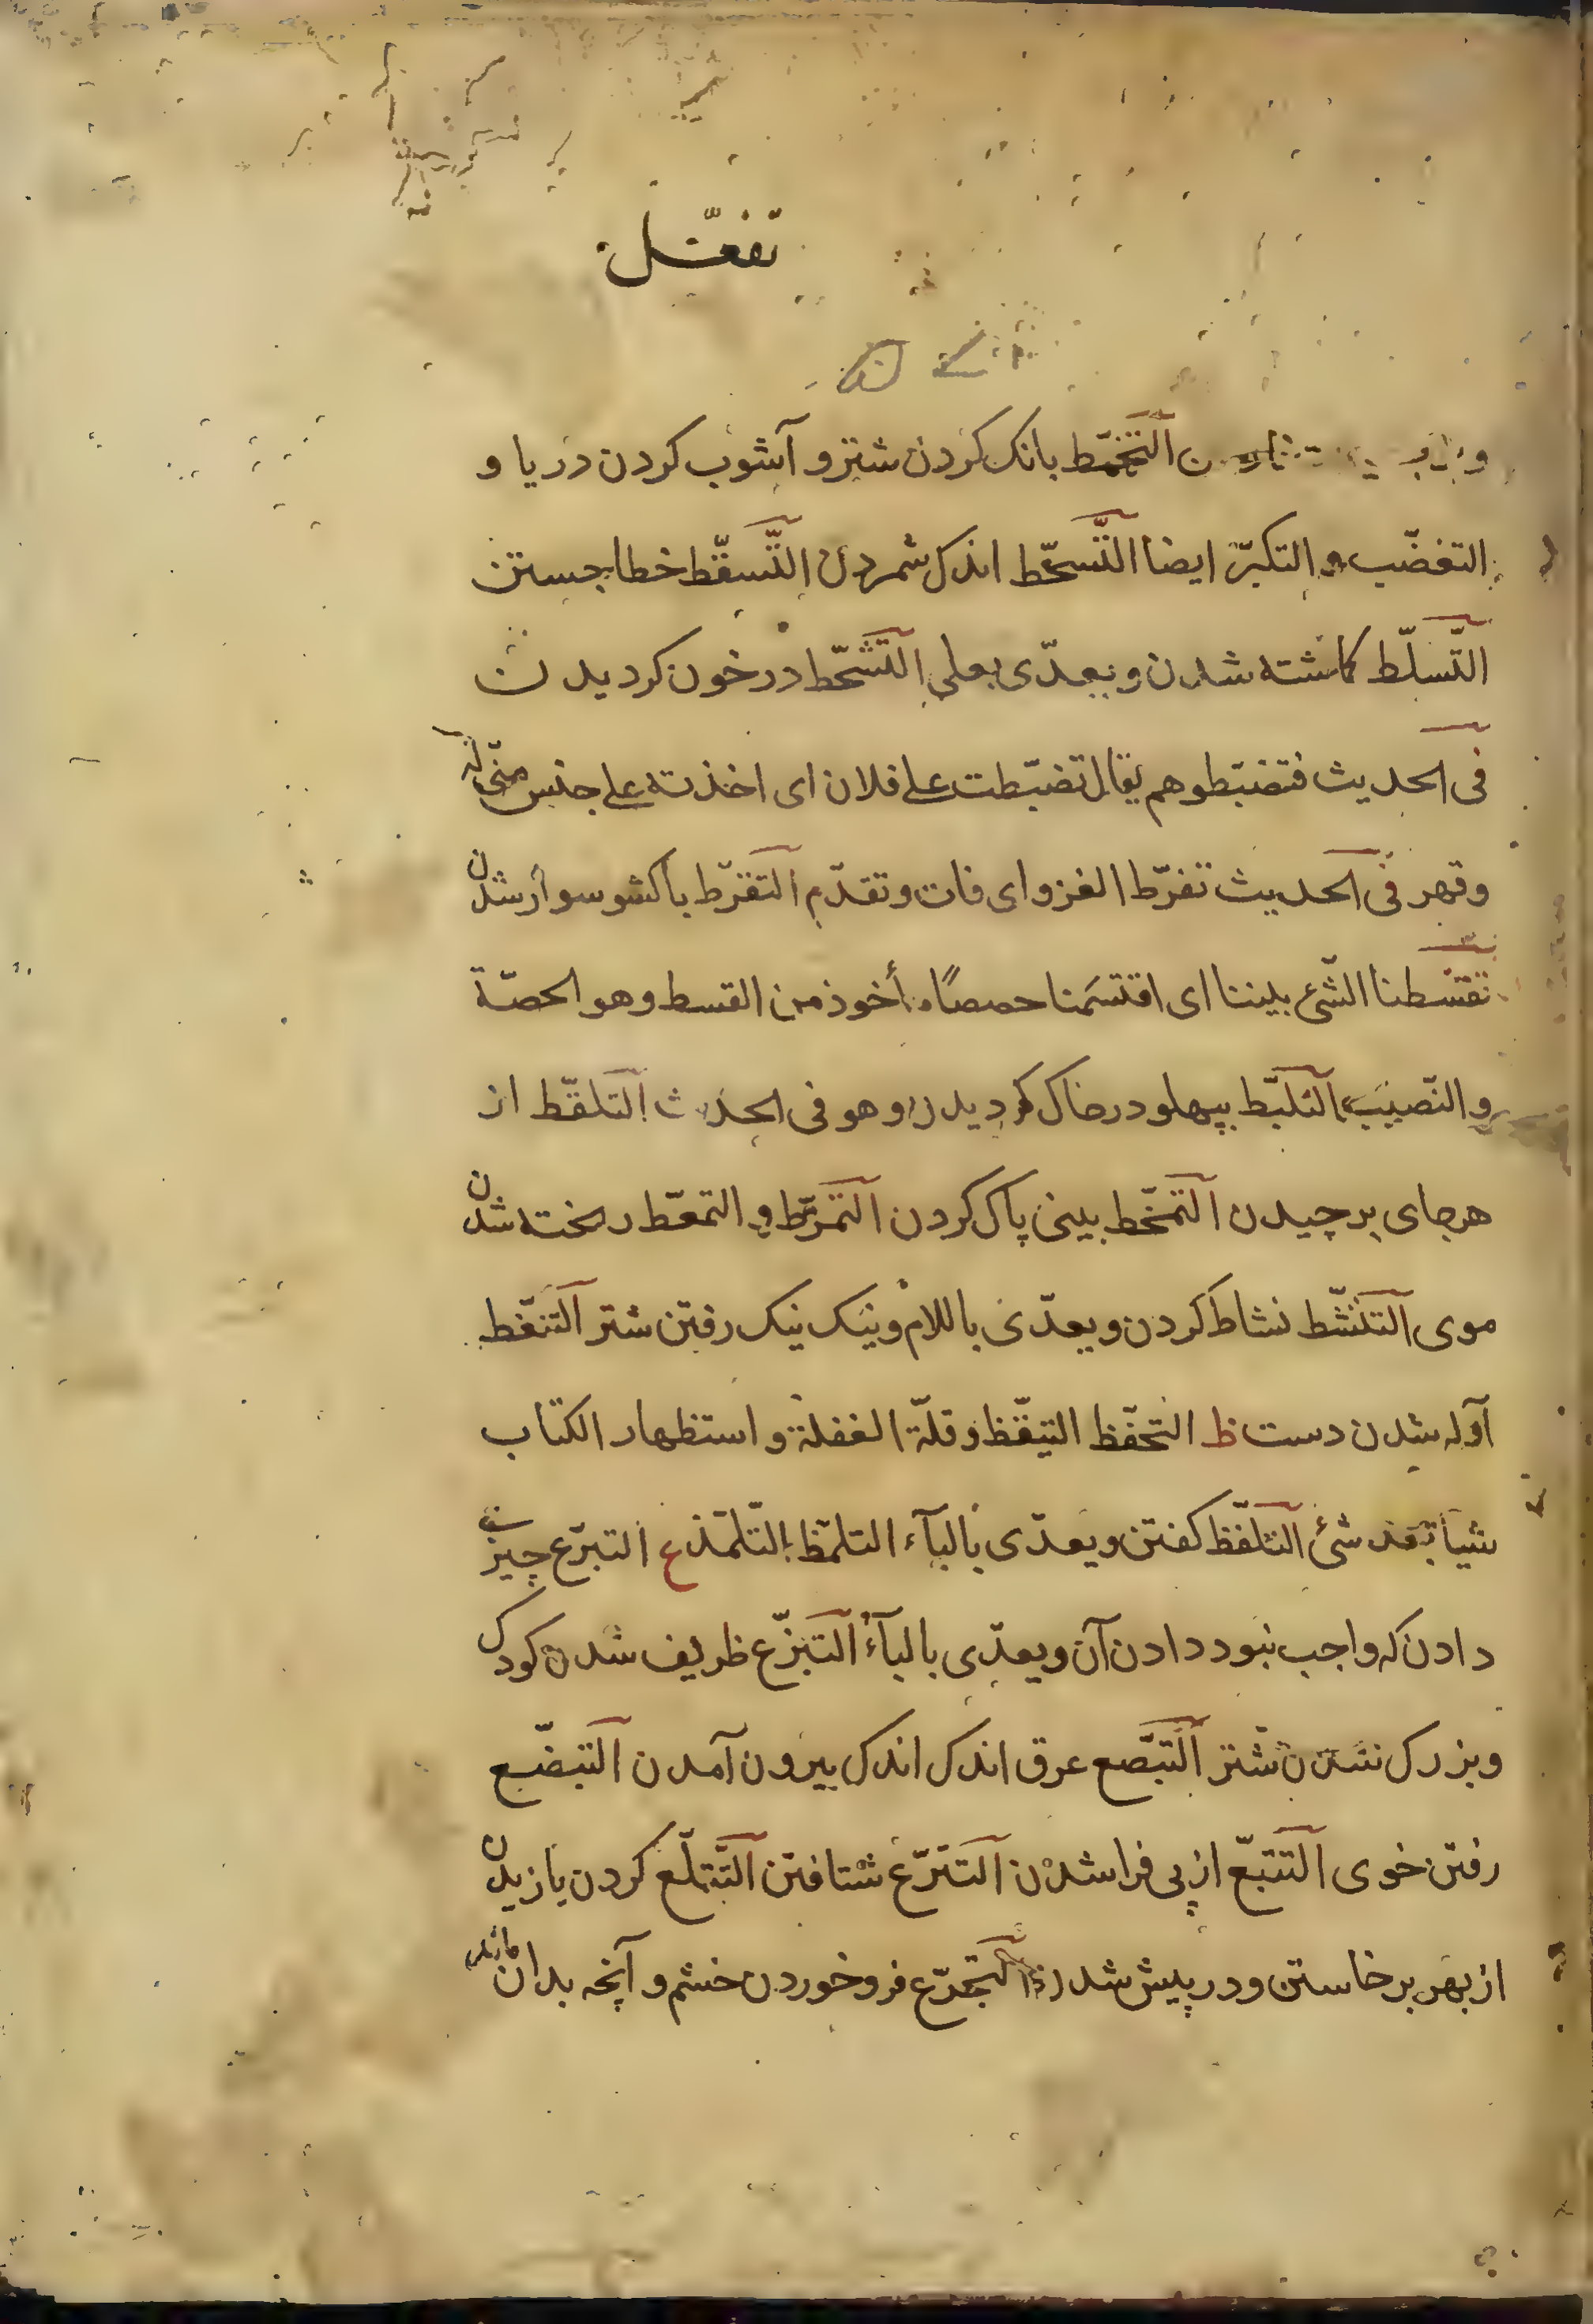 تفعّل
التَّخَمّط بانک کردن شتر و آشوب کردن دریا و
التغضّب و التکبّر ایضا التَّسَخّط اندک شمردن التَّسقّط خطا جستن
التَّسلّط کماشته شدن و یعدّی بعلی التَّشَحّط در خون کردیدن
فی الحدیث فتضبّطوهم یقال تضبّطت علی فلان ای اخذته علی حبس منّی له
و قهر فی الحدیث تفرّط الغزو ای فات و تقدّم التَقرّط با کشوسوار شدن
تقسّطنا الشّیء بیننا ای اقتسَمنا حصصًا مأخوذ من القسط و هو الحصّة
و النّصیب التَلبّط بپهلو در خاک کردیدن و هو فی الحدیث التَلقّط از
هر جای برچیدن التَمَخّط بینی پاک کردن التَمَرّط و التمعّط ریخته شدن
موی التَنَشّط نشاط کردن و یعدّی باللام و نیک نیک رفتن شتر التَنَفّط
آوله شدن دست ظ التحفّظ التیقّظ و قلّة الغفلة و استظهار الکتاب
شیأ بعد شئ التَلَفّظ کفتن و یعدّی بالبآء التلمّظ التّلمّذ ع التبرّع چیزی
دادن که واجب نبود دادن آن و یعدّی بالبآء التَبَزّع ظریف شدن کودک
و بزرک شدن شتر التَبَصّع عرق اندک اندک بیرون آمدن التَبضّع
رفتن خوی التَتَبّع از پی فرا شدن التَتَرّع شتافتن التَّتَلّع کردن یازیدن
از بهر برخاستن و در پیش شدن التَجَرّع فرو خوردن خشم و آنچه بدان ماند